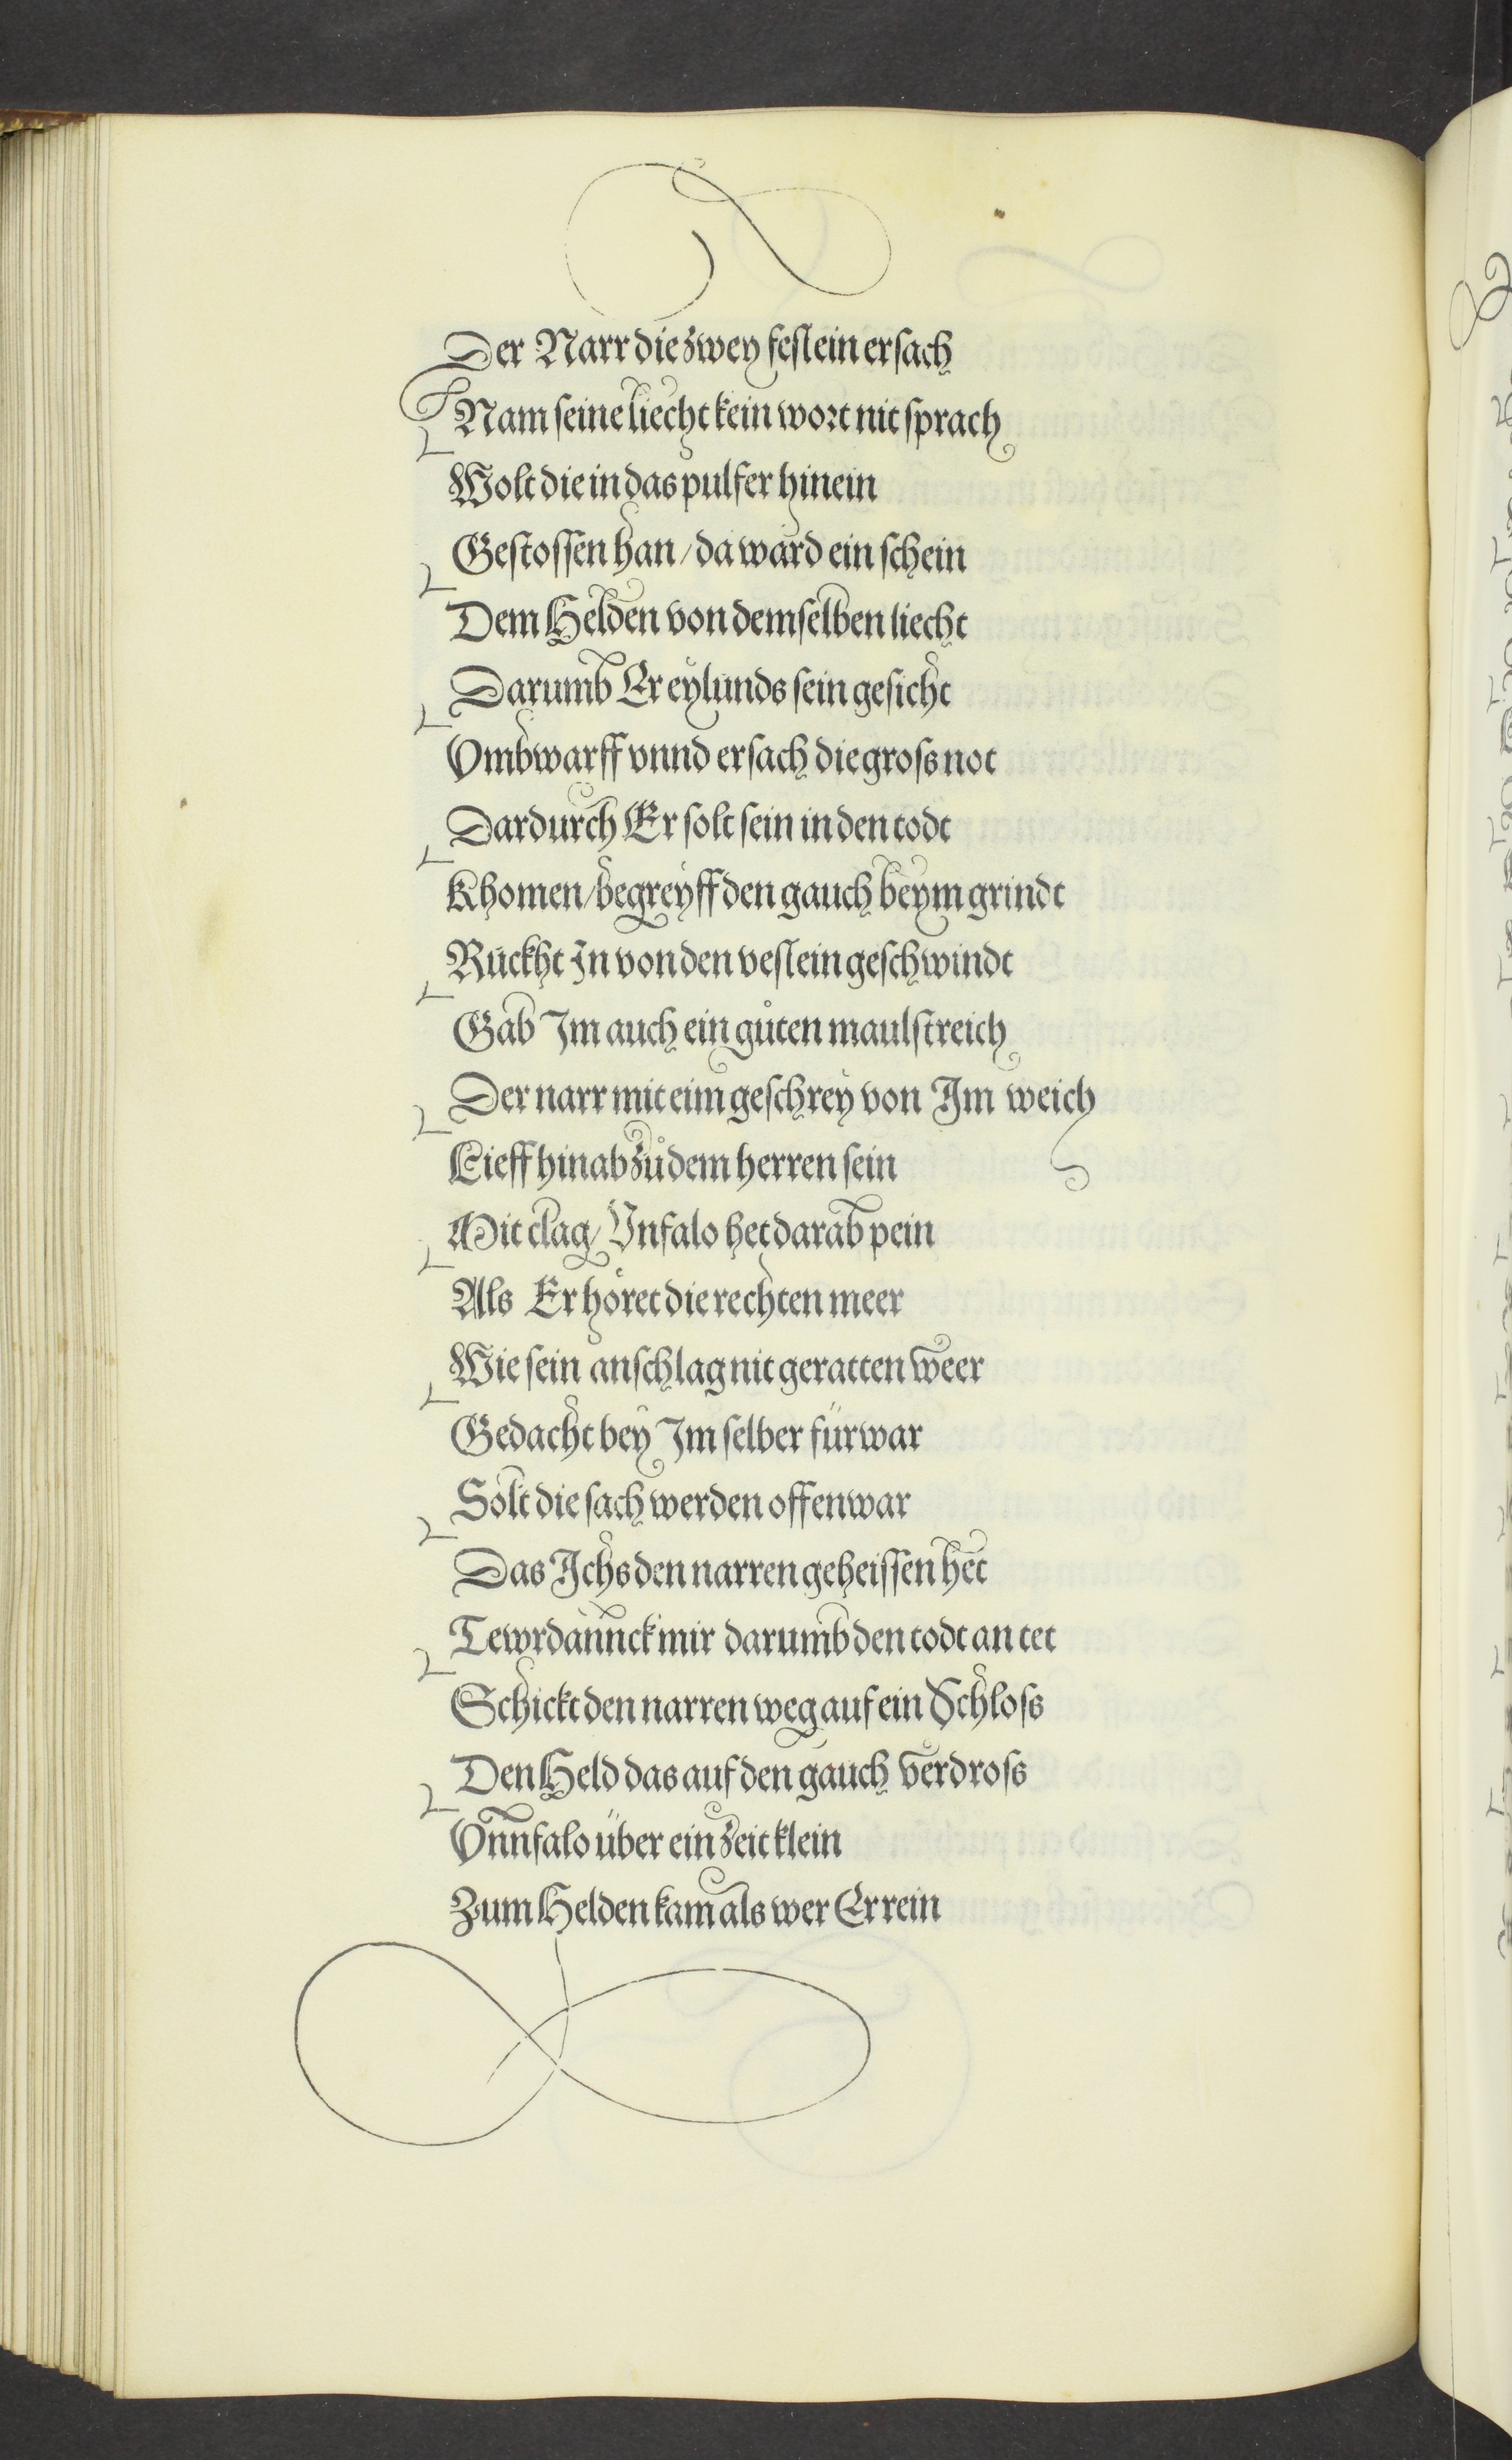 Der Narr die zwey feslein ersach
Nam seine liecht kein wort nit sprach
Wolt die in das pulfer hinein
Gestossen han / da ward ein schein
Dem Helden von demselben liecht
Darumb Er eylunds sein gesicht
Vmbwarff vnnd ersach die gross not
Dardurch Er solt sein in den todt
Khomen / begreyff den gauch beym grindt
Ruckht In von den veslein geschwindt
Gab Im auch ein gůten maulstreich
Der narr mit eim geschrey von Im weich
Lieff hinab zů dem herren sein
Mit clag / Vnfalo het darab pein
Als Er höret die rechten meer
Wie sein anschlag nit geratten weer
Gedacht bey Im selber fürwar
Solt die sach werden offenwar
Das Ichs den narren geheissen het
Tewrdannck mir darumb den todt an tet
Schickt den narren weg auf ein Schloss
Den Held das auf den gauch verdross
Vnnfalo über ein zeit klein
Zum Helden kam als wer Er rein